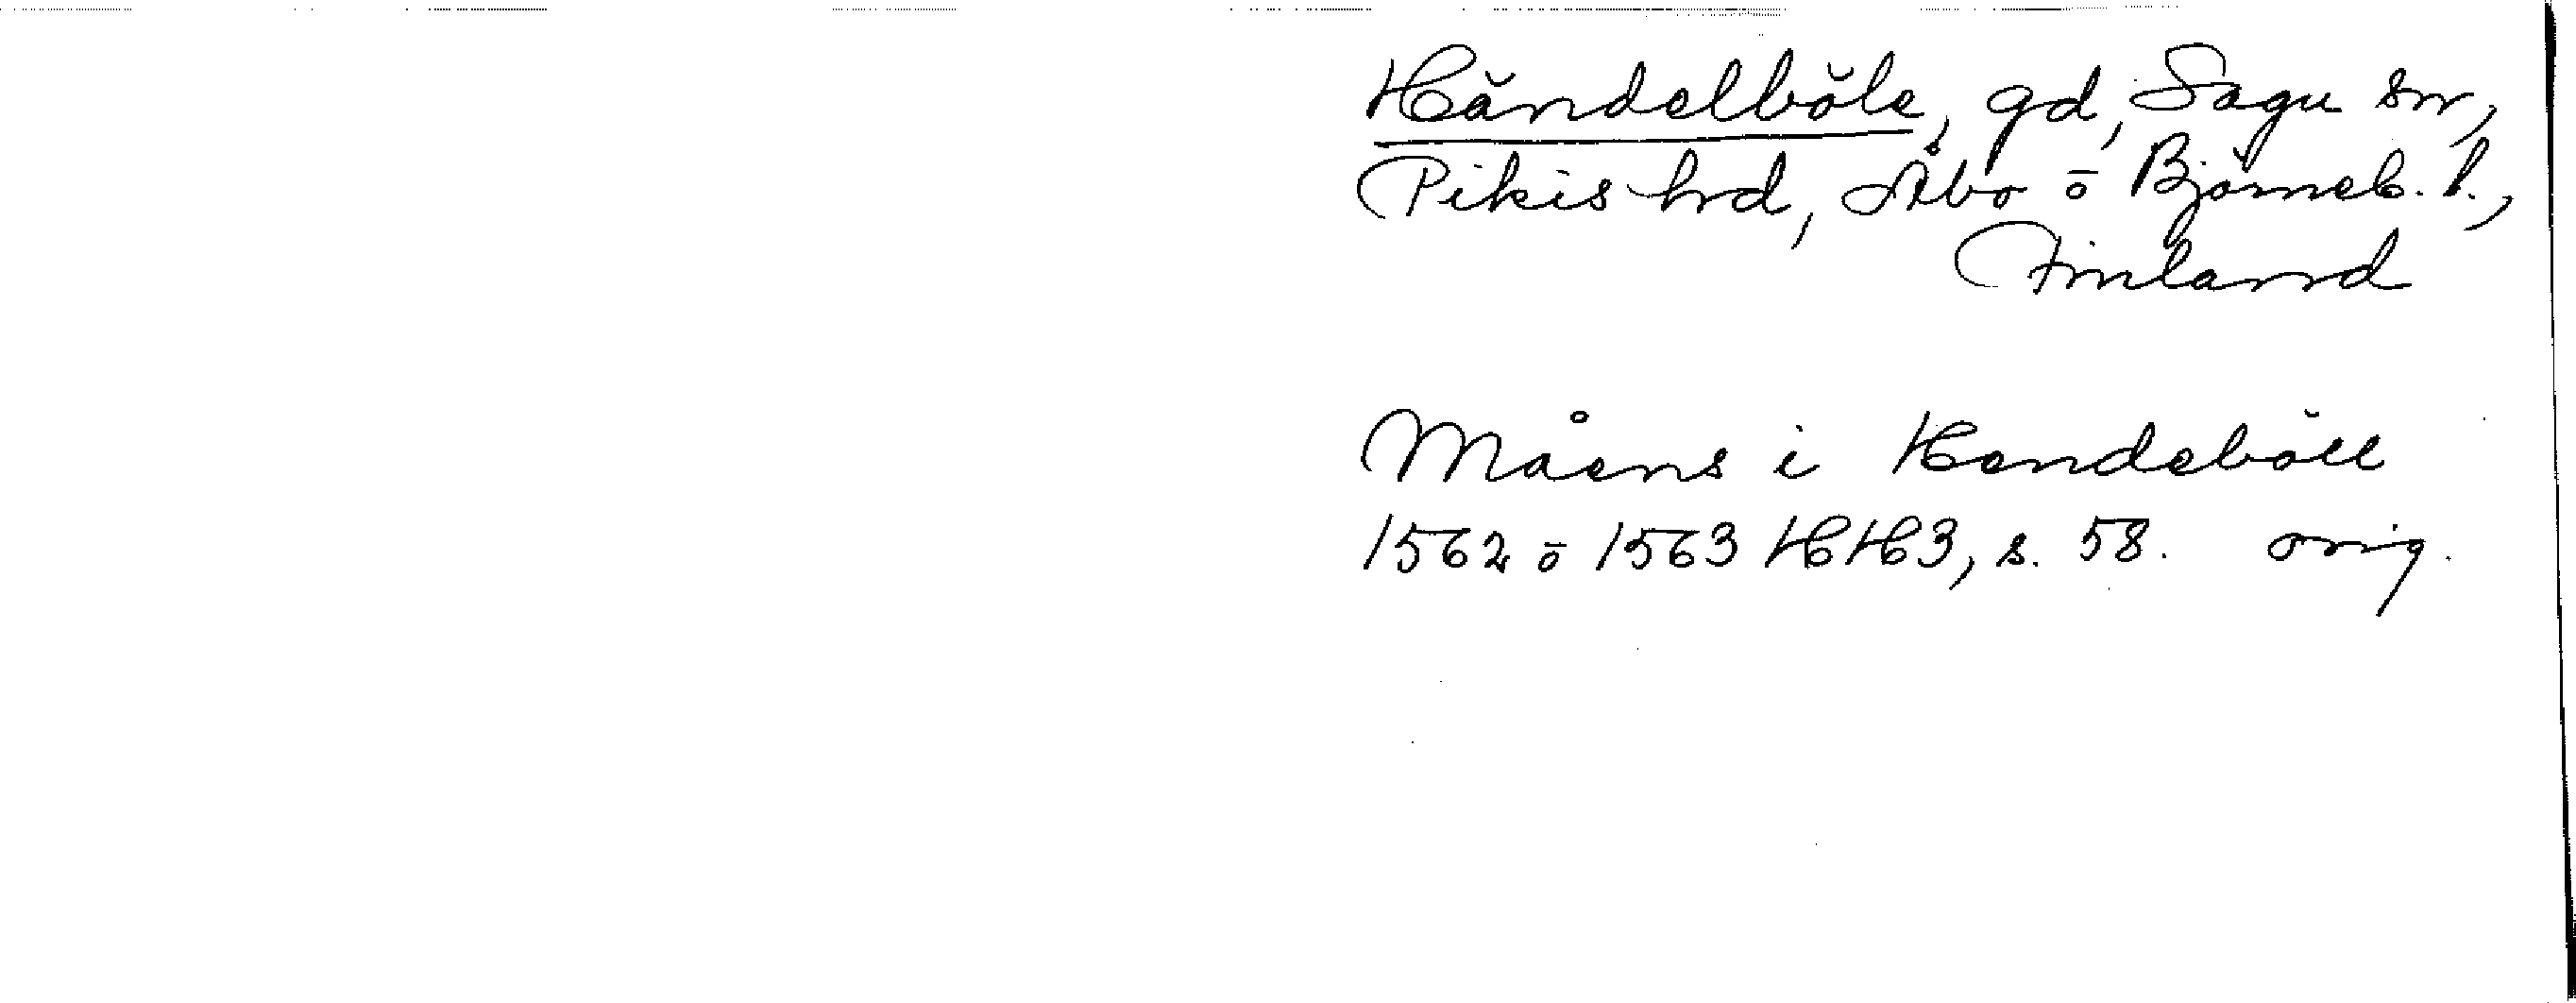 Händelböle, gd, Sagu sn,
Pikis hrd, Åbo o Björneb. l.,
Finland
Måens i Hendeböle
1562 o 1563 HH3, s. 58. orig.